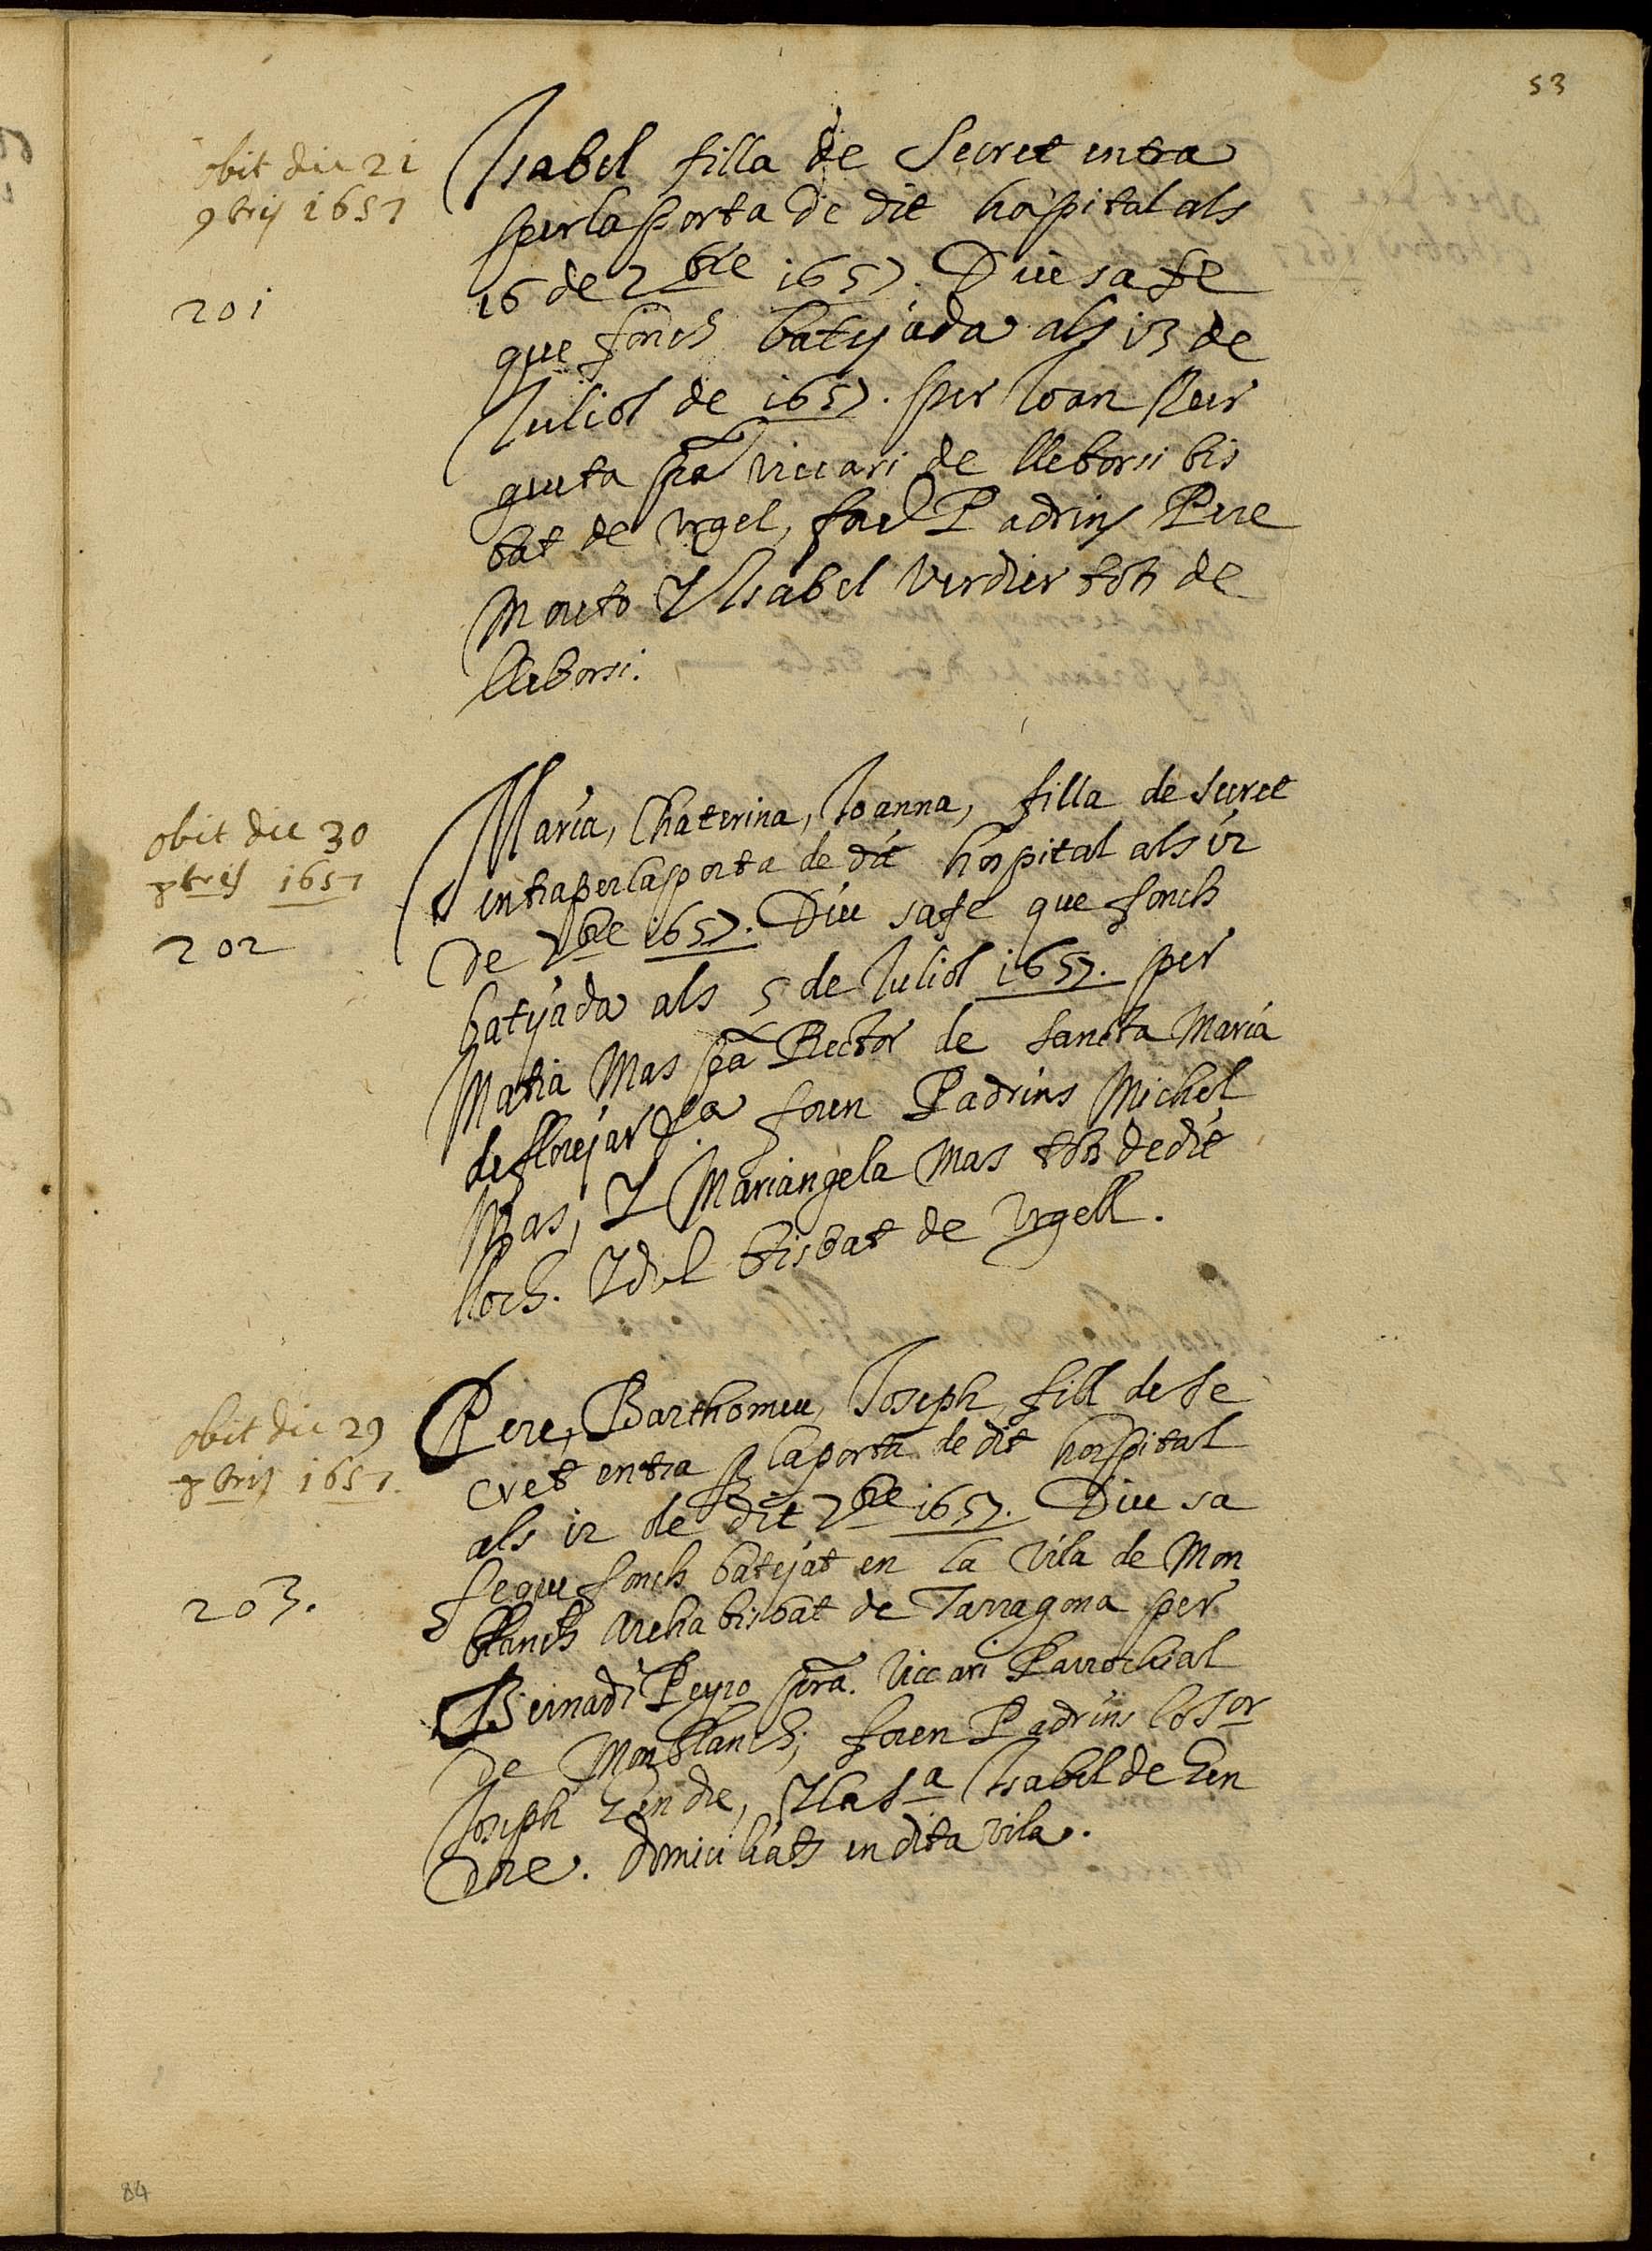 53
obit die 21
9bris 1657
201
Isabel filla de Secret entra
per la porta de dit hospital als
16 de 7bre 1657. Diu sa fe
que fonch batejada als 13 de
Juliol de 1657. per Joan
pra viccari de lleborsi bis
bat de Urgel, Padrins Pere
Y Isabel Verdier tots de
lleborsi.
obit die 30
8bris 1657
202
Maria, Chaterina, Joanna, filla de secret
entra per la porta de dit hospital als 12
de 7bre 1657. Diu sa fe que fonch
batejada als 5 de Juliol 1657. per
Matia Mas pra Rector de Sancta Maria
de floreja foren Padrins Michel
Mas, Y Mariangela Mas tots de dit
lloch. Y del bisbat de Urgell.
obit die 29
8bris 1657.
203.
Pere, Barthomeu, Joseph, fill de se
cret entra p la porta de dit hospital
als 12 de dit 7bre 1657. Diu sa
fe que fonch batejat en la Vila de Mon
blanch Archabisbat de Tarragona per
Bernadi Peyro pra. Viccari Parrochial
de Monblanch; foren Padrins lo Sor
Joseph Y la Sa Isabel de
dre. domiciliats en dita vila.
84